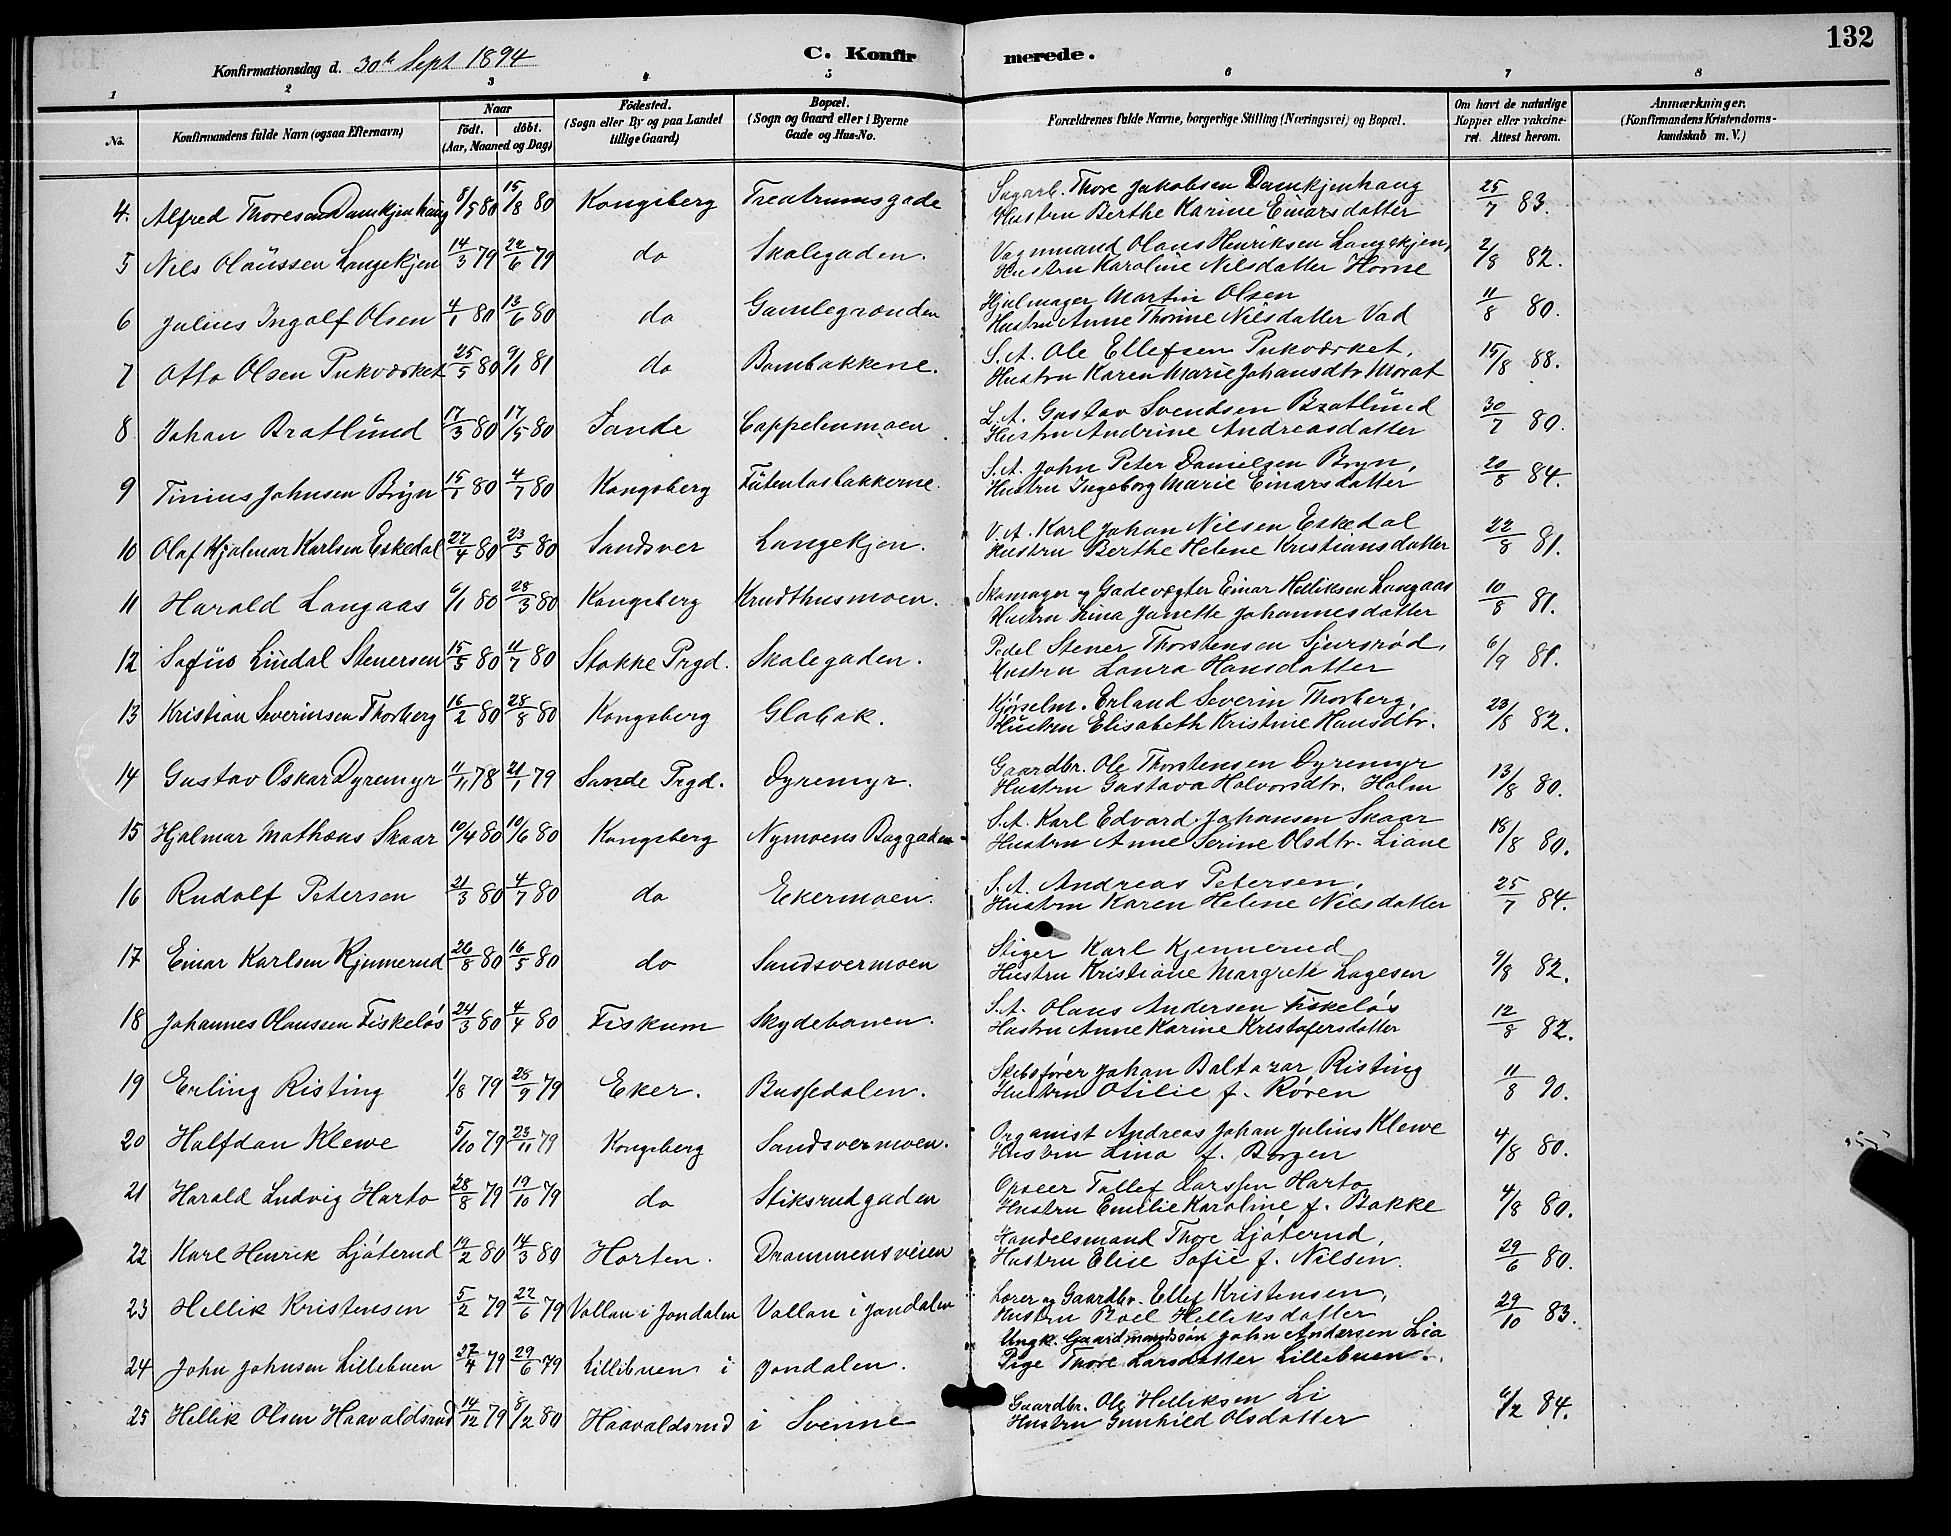 132
Konfirmationsdag d. 30te Sept 1894
C. Konfirmerede.
1 2 3 4 5 6 7 8
No.
Konfirmandens fulde Navn (ogsaa Efternavn)
Naar
födt. döbt.
(Aar, Maaned og Dag)
Födested.
(Sogn eller By og paa Landet
tillige Gaard)
Bopæl.
(Sogn og Gaard eller i Byerne
Gade og Hus-No.
Forældrenes fulde Navne, borgerlige Stilling (Næringsvei) og Bopæl.
Om havt de naturlige
Kopper eller vakcine-
ret. Attest herom.
Anmærkninger.
(Konfirmandens Kristendoms-
kundskab m. V.)
4. Alfred Thoresen Damkjenhaug 8/5 80 15/8 80 Kongsberg Treatrumsgade Sagarb. Thore Jakobsen Damkjenhaug
Hustru Berthe Karine Einarsdatter 25/7 83.
5 Nils Olaussen Langekjen 14/3 79 22/6 79 do Skolegaden. Vognmand Olaus Henriksen Langekjen,
Hustru Karoline Nilsdatter Horne 2/8 82.
6 Julius Ingolf Olsen 4/1 80 13/6 80 do Gamlegrønden Hjulmager Martin Olsen
Hustru Anne Thorine Nilsdatter Vad 11/8 80.
7 Otto Olsen Pukværket 25/5 80 9/1 81 do Bombakkene. S. A. Ole Ellefsen Pukværket,
Hustru Karen Marie Johansdtr Morat 15/8 88.
8 Johan Bratlund 17/3 80 17/5 80 Sande Cappelenmoen. L. A. Gustav Svendsen Bratlund
Hustru Andrine Andreasdatter 30/7 80.
9 Tinius Johnsen Bryn 15/1 80 4/7 80 Kongsberg Futentasbakkerne. S. A. John Peter Danielsen Bryn,
Hustru Ingeborg Marie Einarsdatter 20/8 84.
10 Olaf Hjalmar Karlsen Eskedal 22/4 80 23/5 80 Sandsver Langekjen. V. A. Karl Johan Nilsen Eskedal
Hustru Berthe Helene Kristiansdatter 22/8 81.
11 Harald Langaas 6/1 80 28/3 80 Kongsberg Krudthusmoen. Skomager og Gadevægter Einar Helliksen Langaas
Hustru Lina Janette Johannesdatter 10/8 81.
12 Sofus Lindal Stenersen 15/5 80 11/7 80 Stokke Prgd. Skolegaden. Pedel Stener Thorstensen Sjursrød,
Hustru Laura Hansdatter 6/9 81.
13 Kristian Severinsen Thorberg 16/2 80 28/8 80 Kongsberg Glabak. Kjörselm. Erland Severin Thorberg,
Hustru Elisabeth Kristine Hansdtr. 23/8 82.
14 Gustav Oskar Dyremyr 11/11 78 21/1 79 Sande Prgd. Dyremyr. Gaardbr. Ole Thorstensen Dyremyr
Hustru Gustava Halvorsdtr. Holm 13/8 80.
15 Hjalmar Mathæus Skaar 10/4 80 10/6 80 Kongsberg Nymoens Baggaden S. A. Karl Edvard Johansen Skaar
Hustru Anne Serine Olsdtr. Liane 18/8 80.
16 Rudolf Petersen 21/3 80 4/7 80 do Ekermoen. S. A. Andreas Petersen,
Hustru Karen Helene Nilsdatter 25/7 84.
17 Einar Karlsen Kjennerud 26/8 80 16/5 80 do Sandsvermoen Stiger Karl Kjennerud
Hustru Kristiane Margrete Lagesen 9/8 82.
18 Johannes Olaussen Fiskelös 24/3 80 4/4 80 Fiskum Skydebanen. S. A. Olaus Andersen Fiskelös
Hustru Anne Karine Kristofersdatter 12/8 82.
19 Erling Risting 1/8 79 28/9 79 Eker. Bussedalen. Skibsfører Johan Baltazar Risting
Hustru Otilie f. Røren 11/8 90.
20 Halfdan Klewe 5/10 79 23/11 79 Kongsberg Sandsvermoen. Organist Andreas Johan Julius Klewe
Hustru Lina f. Borgen 4/8 80.
21 Harald Ludvig Harto 28/8 79 19/10 79 do Stiksrudgaden Opseer Tollef Larssen Harto
Hustru Emilie Karoline f. Bakke 4/8 80.
22 Karl Henrik Ljöterud 12/2 80 14/3 80 Horten. Drammensveien Handelsmand Thore Ljöterud,
Hustru Elise Sofie f. Nilsen. 29/6 80.
23 Hellik Kristensen 5/2 79 22/6 79 Vollan i Jondalen Vollan i Jondalen Lærer og Gaardbr. Ellef Kristensen,
Hustru Roel Helliksdatter 29/10 83.
24 John Johnsen Lillebuen 27/4 79 29/6 79 Lillebuen i Jondalen. Ungk. Gaardmandssøn John Andersen Lia
Pige Thore Larsdatter Lillebuen.
25 Hellik Olsen Haavaldsrud 14/12 79 8/2 80 Haavaldsrud i Svenne Gaardbr. Ole Helliksen Li
Hustru Gunhild Olsdatter 6/2 84.